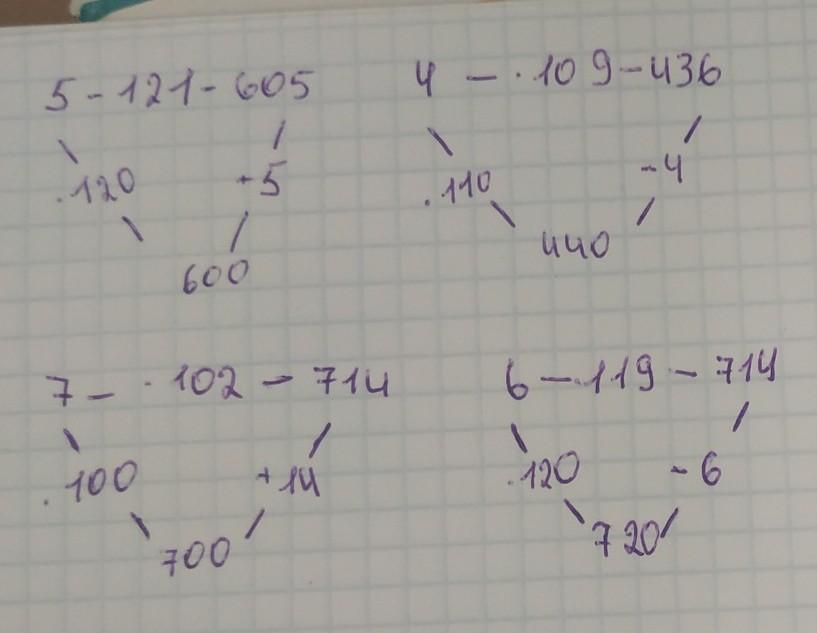 5 - 121 - 605
.120 +5
600
4 - .109 - 436
.110 -4
440
7 - .102 - 714
.100 +14
700
6 - .119 - 714
.120 -6
720